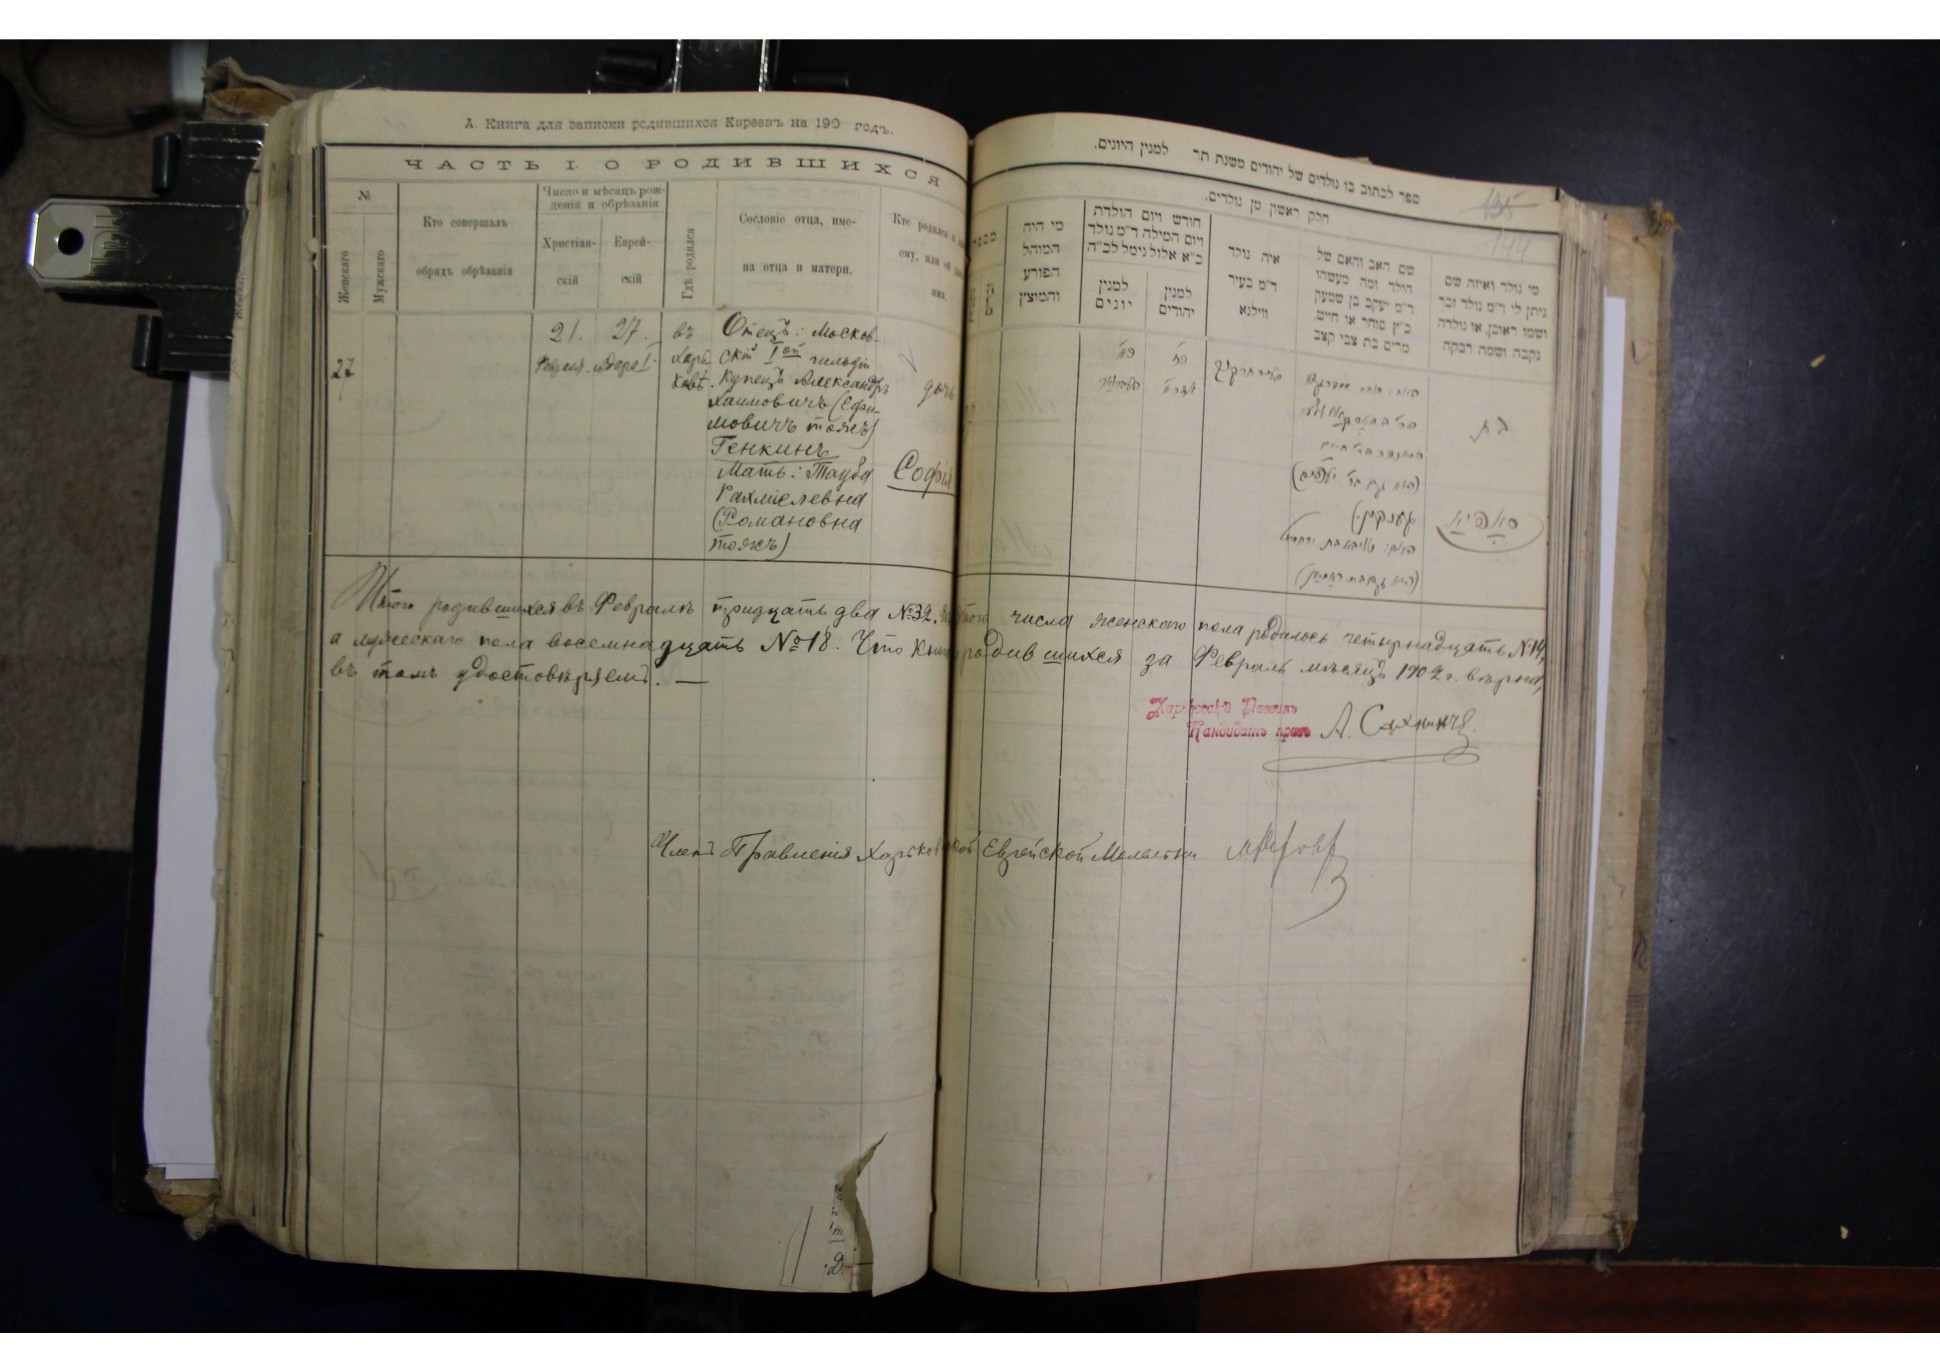 А. Книга для записки родившихся Евреевъ на 190 годъ.
ЧАСТЬ I. О РОДИВШИХСЯ
№
Женскаго
Мужскаго
Кто совершалъ
обрядъ обрѣзанія
Число и мѣсяцъ рож-
денія и обрѣзанія
Христіан-
скій
Еврей-
скій
Гдѣ родился
Сословіе отца, име-
на отца и матери.
Кто родился и
ему, или ей
27
21.
Февраля.
27.
Адара I
въ
Харь-
ковѣ.
Отецъ: Москов-
скій Iой гильдіи
купецъ Александръ
Хаимовичъ (Ефи-
мовичъ тожъ)
Генкинъ
Мать: Тауба
Рахміелевна
(Романовна
тожъ)
дочь
Софія
ספר לכתוב בו נולדים של יהודים משנת תר למנין היונים.
135
144
חלק ראשון מן נולדים.
מי היה
המוהל
הפורע
והמוצץ
חודש ויום הולדת
ויום המילה ד"מ נולד
כ"א אלול נימל לכ"ה
למנין
יונים
למנין
יהודים
איה נולד
ד"מ בעיר
ווילנא
שם האב והאם של
הילד ומה מעשהו
ד"מ יעקב בן שמעון
כ"ץ סוחר או חייט,
מרים בת צבי קצב
מי נולד ואיזה שם
ניתן לו ד"מ נולד זכר
ושמו ראובן, או נולדה
נקבה ושמה רבקה
בת
סאפיא
Итого родившихся въ Февралѣ тридцать два №32. Изъ этого числа женскаго пола родилось четырнадцать №14,
а мужескаго пола восемнадцать №18. Что книга родившихся за Февраль мѣсяцъ 1902 г. вѣрна,
въ томъ удостовѣряемъ. —
Харьковскій Раввинъ
Кандидатъ правъ А. Сахн
Членъ Правленія Харьковской Еврейской Молельни